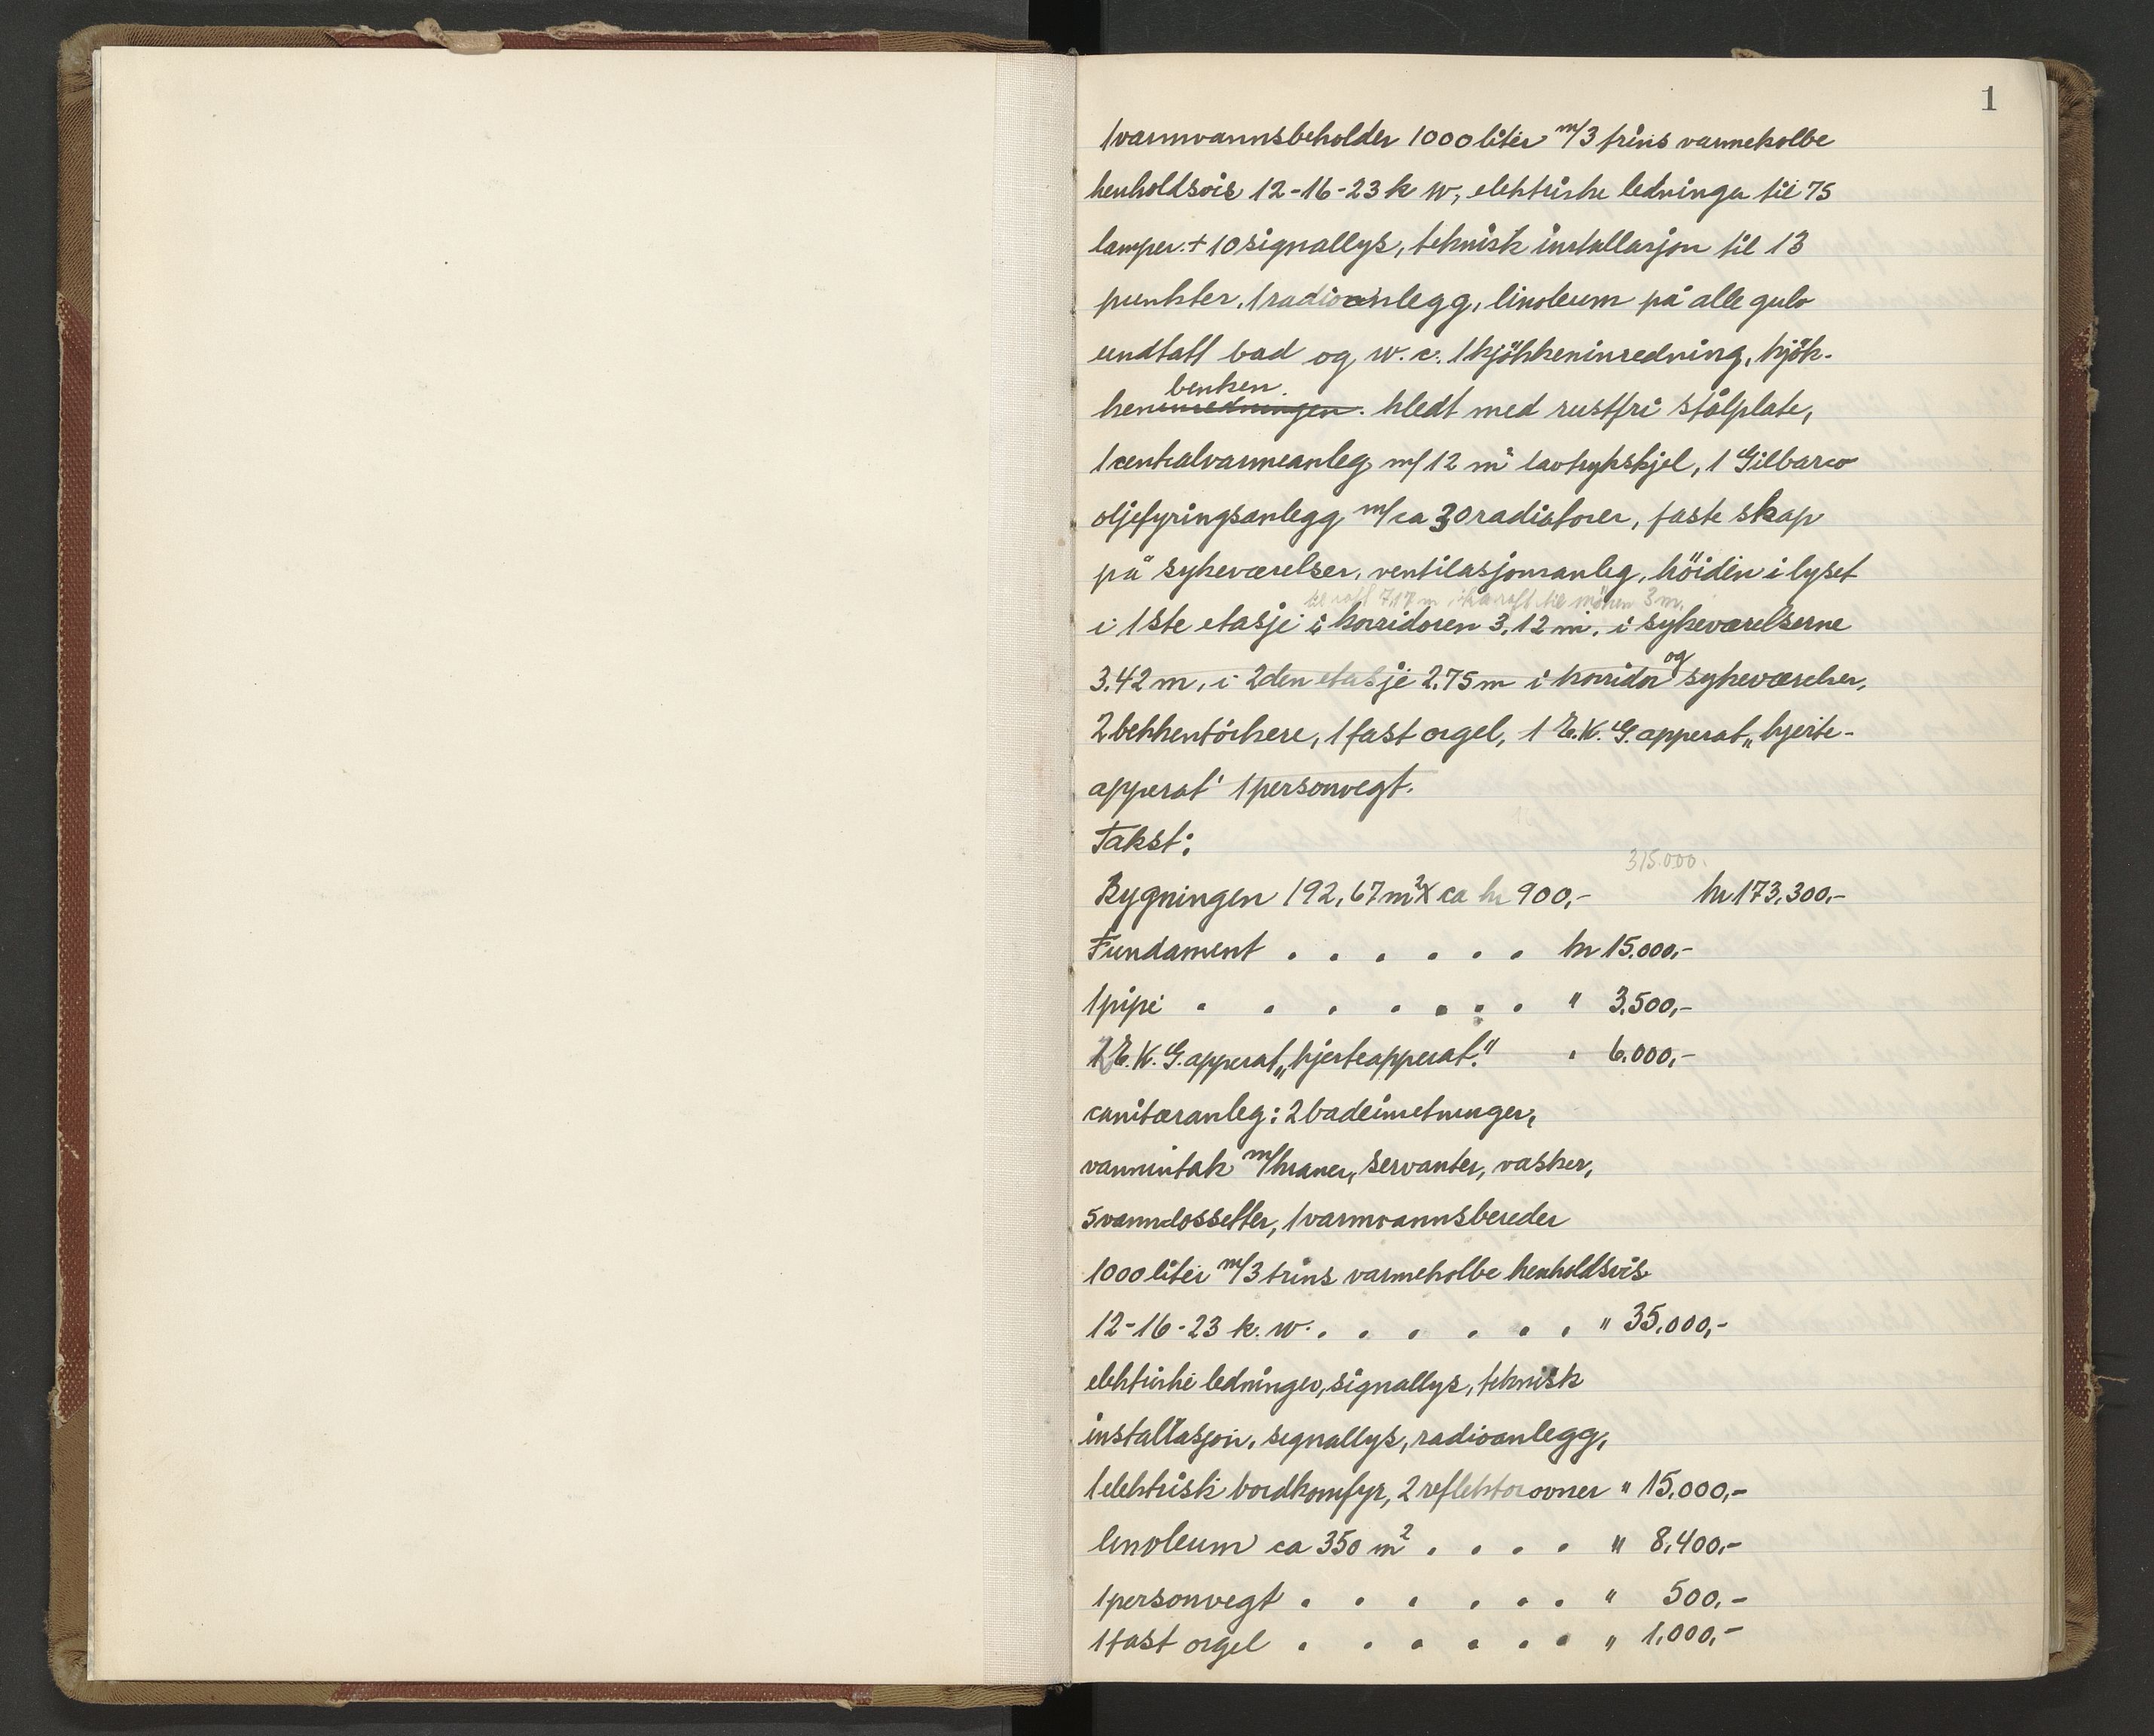 1
1 varmvannsbeholder 1000 liter m/3 trins varmekolbe
henholdsvis 12-16-23 k w, elektriske ledninger til 75
lamper. + 10 signallys, teknisk installasjon til 13
punkter, 1 radioanlegg, linoleum på alle gulv
undtatt bad og w. c. 1 kjökkeninredning, kjök-
benken
keninredningen. kledt med rustfri stålplate,
1 centralvarmeanleg m/12 m² lavtrykskjel, 1 Gilbarco
oljefyringsanlegg m/ca 30 radiatorer, faste skap
på sykeværelser, ventilasjonsanleg, höiden i lyset
til raft 7,17 m fra raft til mönen 3 m.
i 1ste etasje i korridoren 3,12 m, i sykeværelserne
og
3.42 m, i 2den etasje 2.75 m i korridor sykeværelser,
2 bekkentörkere, 1 fast orgel, 1 E.K.G. apperat „hjerte-
apperat" 1 personvegt.
Takst:
315.000.
Bygningen 192,67 m² x ca kr 900,- kr 173.300,-
Fundament . . . . . . kr 15.000,-
1 pipe . . . . . . . " 3.500,-
1 E.K.G. apperat „hjerteapperat." " 6.000,-
canitæranleg: 2 badeinretninger,
vanninntak m/kraner, servanter, vasker,
5 vannclossetter, 1 varmvannsbereder
1000 liter m/3 trins varmekolbe henholdsvis
12-16-23 k. w. . . . . . . " 35.000,-
elektriske ledninger, signallys, teknisk
installasjon, signallys, radioanlegg,
1 elektrisk bordkomfyr, 2 reflektorovner " 15.000,-
linoleum ca 350 m² . . . . " 8.400,-
1 personvegt . . . . . . " 500,-
1 fast orgel . . . . . . " 1.000,-